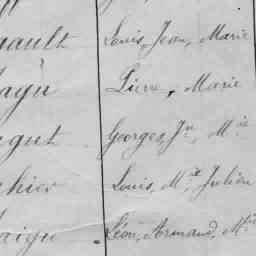 gault Louis, Jean, Marie
Pierre, Marie
gut Georges, Jn, Mie
hier Louis, Mie Julien
Léon, Armand, Mie